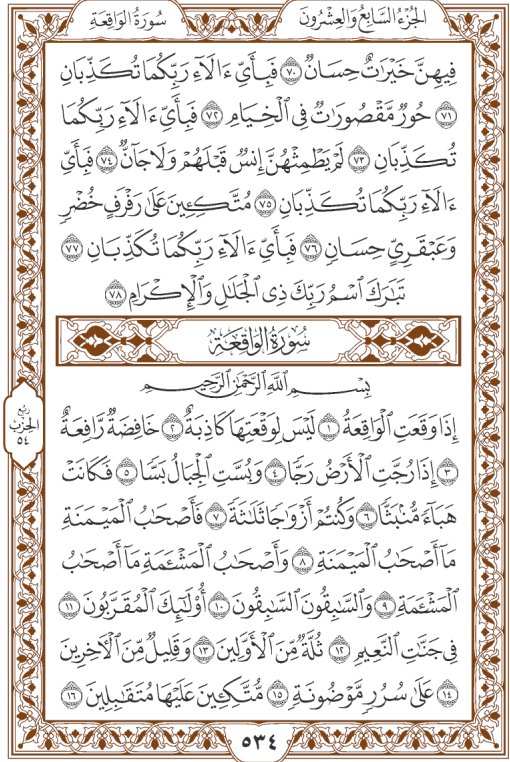 الجزء السابع والعشرون
سورة الواقعة
فِيهِنَّ خَيْرَٰتٌ حِسَانٌ ٧٠ فَبِأَيِّ ءَالَآءِ رَبِّكُمَا تُكَذِّبَانِ
٧١ حُورٌ مَّقْصُورَٰتٌ فِي ٱلْخِيَامِ ٧٢ فَبِأَيِّ ءَالَآءِ رَبِّكُمَا
تُكَذِّبَانِ ٧٣ لَمْ يَطْمِثْهُنَّ إِنسٌ قَبْلَهُمْ وَلَا جَآنٌّ ٧٤ فَبِأَيِّ
ءَالَآءِ رَبِّكُمَا تُكَذِّبَانِ ٧٥ مُتَّكِـِٔينَ عَلَىٰ رَفْرَفٍ خُضْرٍ
وَعَبْقَرِيٍّ حِسَانٍ ٧٦ فَبِأَيِّ ءَالَآءِ رَبِّكُمَا تُكَذِّبَانِ ٧٧
تَبَٰرَكَ ٱسْمُ رَبِّكَ ذِي ٱلْجَلَٰلِ وَٱلْإِكْرَامِ ٧٨
سُورَةُ الوَاقِعَة
بِسْمِ ٱللَّهِ ٱلرَّحْمَٰنِ ٱلرَّحِيمِ
إِذَا وَقَعَتِ ٱلْوَاقِعَةُ ١ لَيْسَ لِوَقْعَتِهَا كَاذِبَةٌ ٢ خَافِضَةٌ رَّافِعَةٌ
٣ إِذَا رُجَّتِ ٱلْأَرْضُ رَجًّا ٤ وَبُسَّتِ ٱلْجِبَالُ بَسًّا ٥ فَكَانَتْ
هَبَآءً مُّنۢبَثًّا ٦ وَكُنتُمْ أَزْوَٰجًا ثَلَٰثَةً ٧ فَأَصْحَٰبُ ٱلْمَيْمَنَةِ
مَآ أَصْحَٰبُ ٱلْمَيْمَنَةِ ٨ وَأَصْحَٰبُ ٱلْمَشْـَٔمَةِ مَآ أَصْحَٰبُ
ٱلْمَشْـَٔمَةِ ٩ وَٱلسَّٰبِقُونَ ٱلسَّٰبِقُونَ ١٠ أُوْلَٰٓئِكَ ٱلْمُقَرَّبُونَ ١١
فِي جَنَّٰتِ ٱلنَّعِيمِ ١٢ ثُلَّةٌ مِّنَ ٱلْأَوَّلِينَ ١٣ وَقَلِيلٌ مِّنَ ٱلْأٓخِرِينَ
١٤ عَلَىٰ سُرُرٍ مَّوْضُونَةٍ ١٥ مُّتَّكِـِٔينَ عَلَيْهَا مُتَقَٰبِلِينَ ١٦
ربع
الحزب
٥٤
٥٣٤